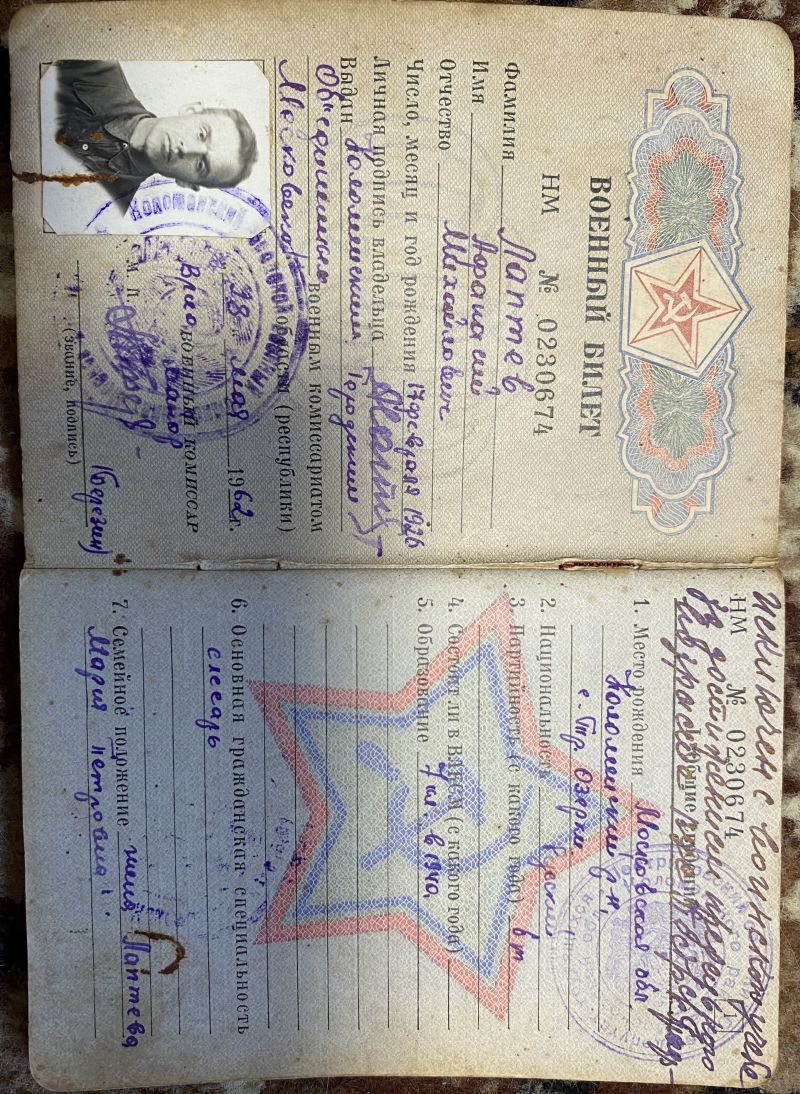 ВОЕННЫЙ БИЛЕТ
НМ № 0230674
Фамилия Лаптев
Имя Афанасий
Отчество Михайлович
Число, месяц и год рождения 17 февраля 1926
Личная подпись владельца
Выдан Коломенским городским
Объединенным военным комиссариатом
Московской области (республики)
"28" мая 1962 г.
Врио ВОЕННЫЙ КОМИССАР
М. П.
(Березин)
(звание, подпись)
Исключен с воинского учета
по достижении предельного
возраста
НМ № 0230674
1. Место рождения Московская обл.
Коломенский р-н,
с. Озерки
2. Национальность Русский
3. Партийность (с какого года) б/п
4. Состоит ли в ВЛКСМ (с какого года)
5. Образование 7 кл. в 1940
6. Основная гражданская специальность
слесарь
7. Семейное положение жена Лаптева
Мария Петровна